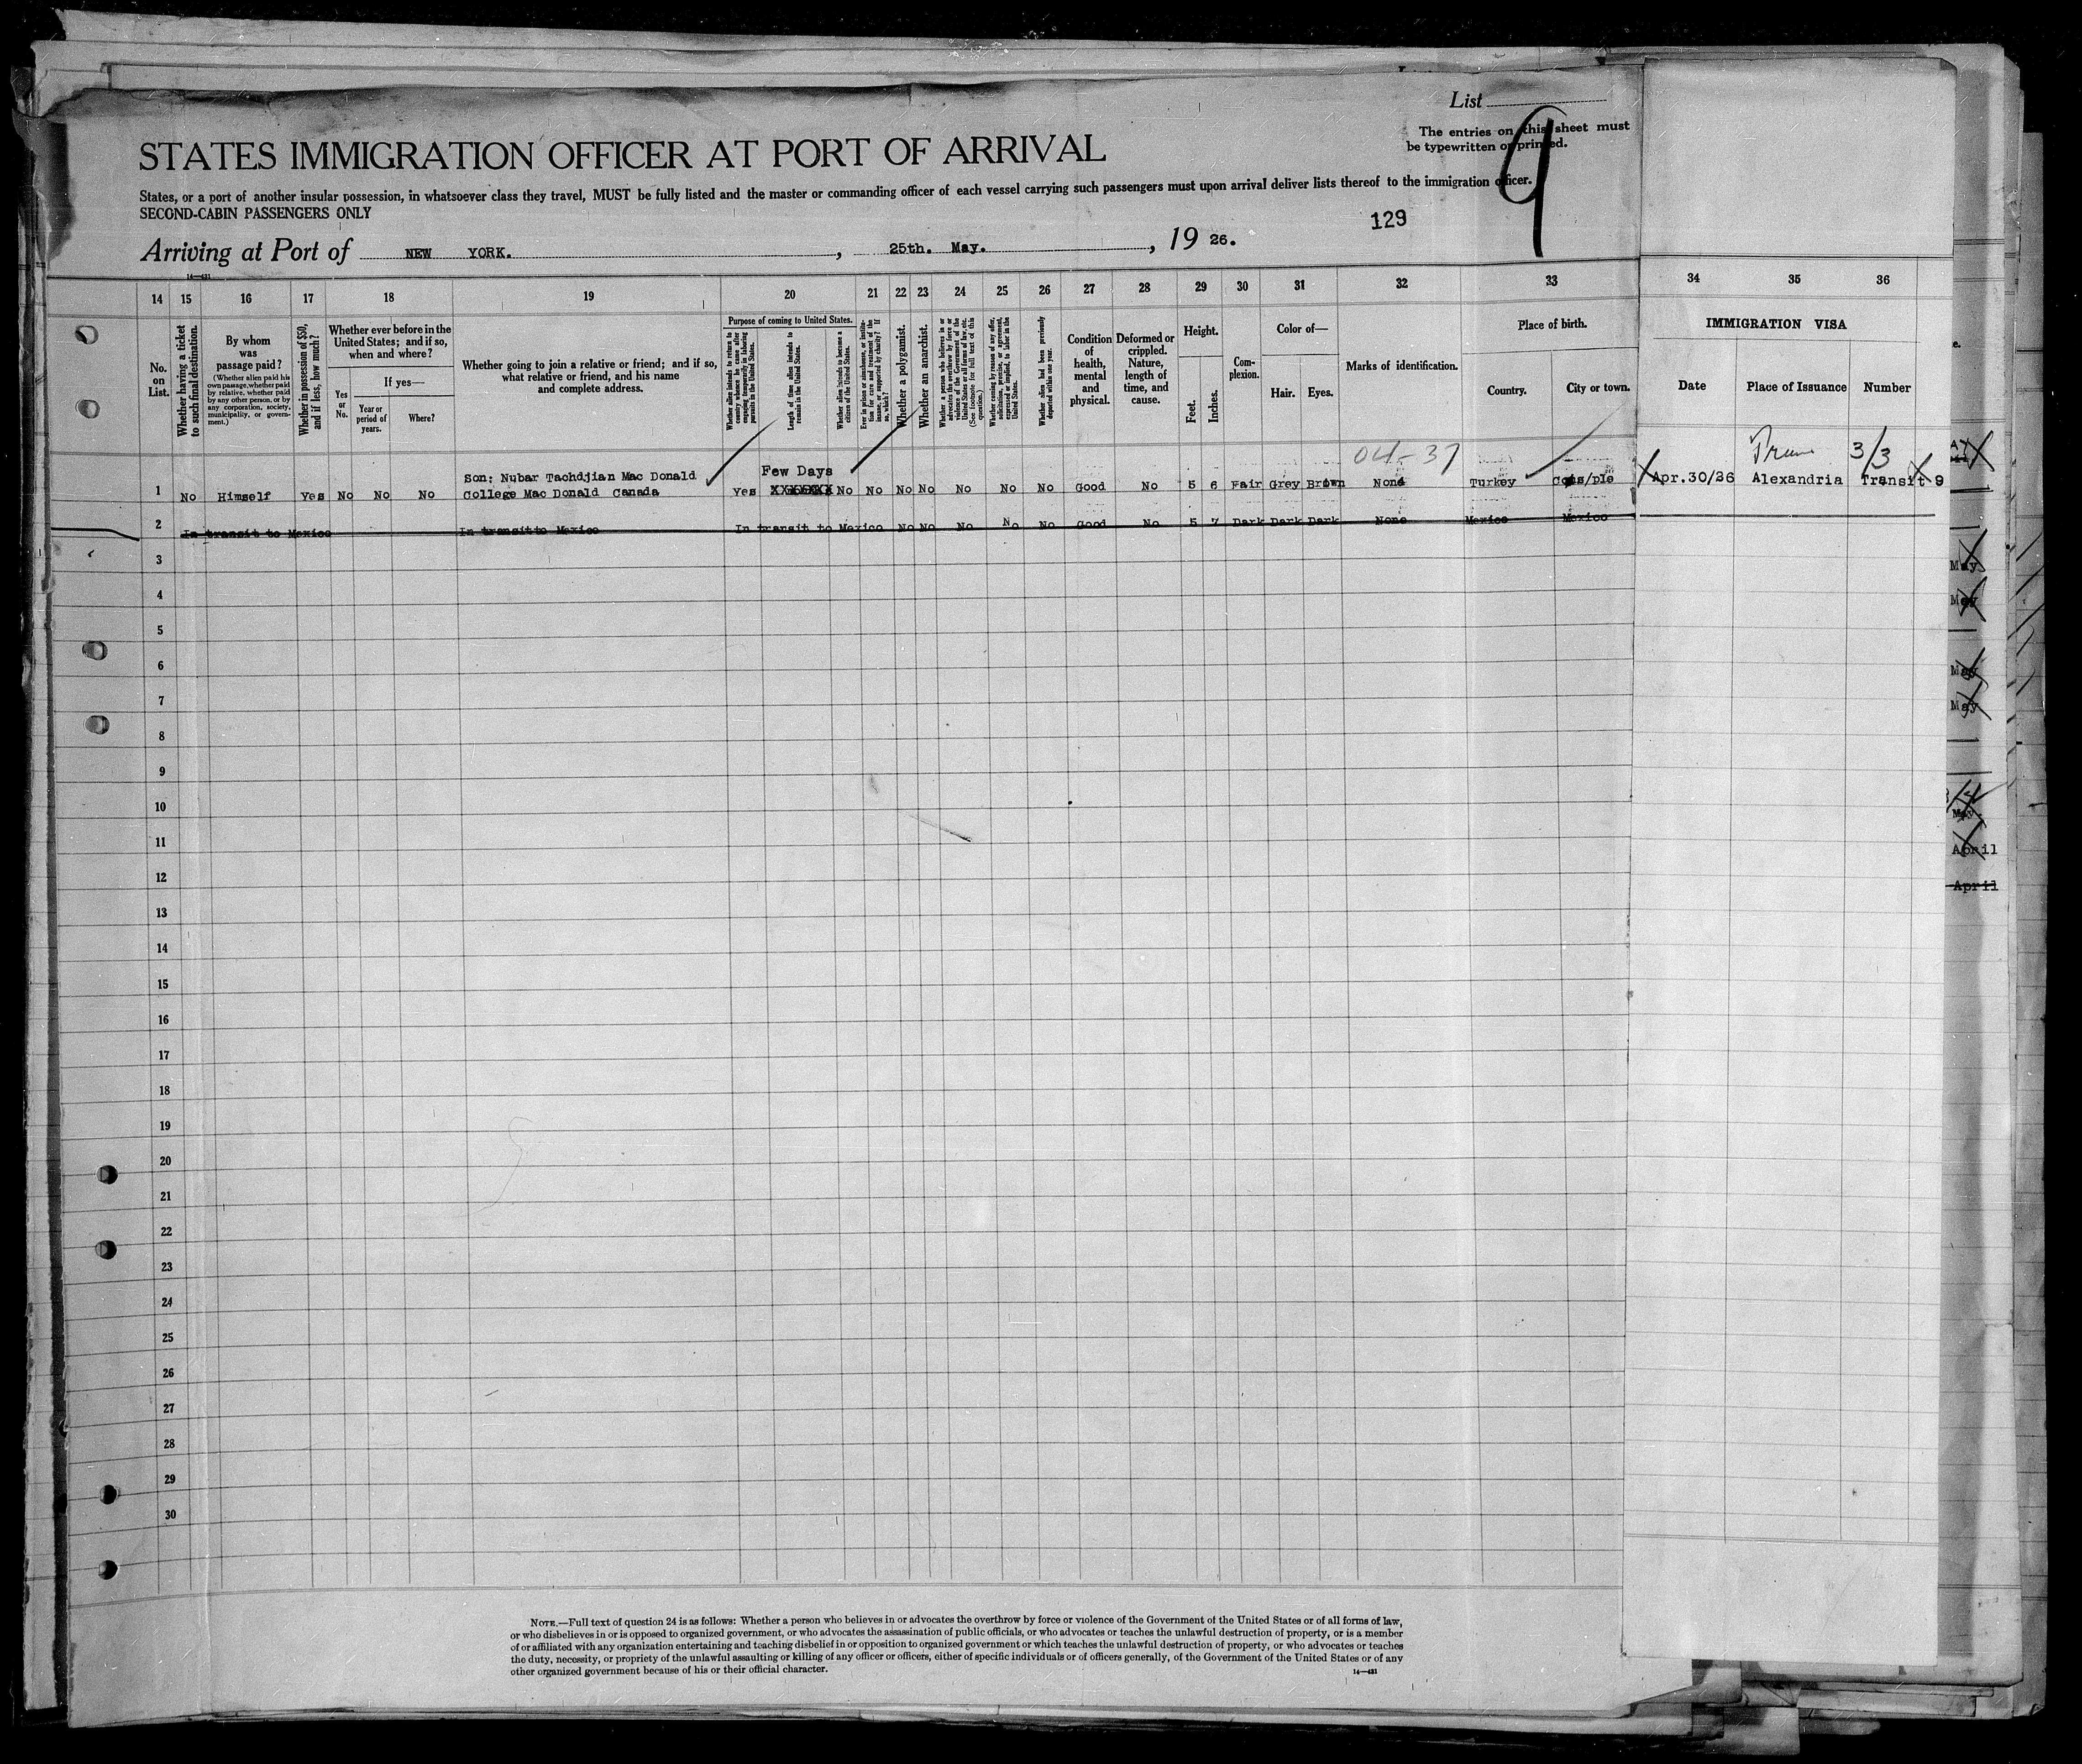 List
The entries on this sheet must
be typewritten or printed.
9
STATES IMMIGRATION OFFICER AT PORT OF ARRIVAL
States, or a port of another insular possession, in whatsoever class they travel, MUST be fully listed and the master or commanding officer of each vessel carrying such passengers must upon arrival deliver lists thereof to the immigration officer.
SECOND-CABIN PASSENGERS ONLY
129
Arriving at Port of NEW YORK. , 25th. May. , 19 26.
14—431
14 15 16 17 18 19 20 21 22 23 24 25 26 27 28 29 30 31 32 33 34 35 36
No. on List.
Whether having a ticket to such final destination.
By whom was passage paid?
(Whether alien paid his own passage, whether paid by relative, whether paid by any other person, or by any corporation, society, municipality, or government.)
Whether in possession of $50, and if less, how much?
Whether ever before in the United States; and if so, when and where?
Yes or No.
If yes—
Year or period of years.
Where?
Whether going to join a relative or friend; and if so, what relative or friend, and his name and complete address.
Purpose of coming to United States.
Whether alien intends to return to country whence he came after engaging temporarily in laboring pursuits in the United States.
Length of time alien intends to remain in the United States.
Whether alien intends to become a citizen of the United States.
Ever in prison or almshouse, or institution for care and treatment of the insane, or supported by charity? If so, which?
Whether a polygamist.
Whether an anarchist.
Whether a person who believes in or advocates the overthrow by force or violence of the Government of the United States or all forms of law, etc. (See footnote for full text of this question.)
Whether coming by reason of any offer, solicitation, promise, or agreement, expressed or implied, to labor in the United States.
Whether alien had been previously deported within one year.
Condition of health, mental and physical.
Deformed or crippled. Nature, length of time, and cause.
Height.
Feet. Inches.
Complexion.
Color of—
Hair. Eyes.
Marks of identification.
Place of birth.
Country. City or town.
IMMIGRATION VISA
Date Place of Issuance Number
04-37 3/3
Son: Nubar Tachdjian Mac Donald Few Days
1 No Himself Yes No No No College Mac Donald Canada Yes XXXXXXX No No No No No No No Good No 5 6 Fair Grey Brown None Turkey Cons/ple Apr.30/26 Alexandria Transit 9
2 In transit to Mexico In transit to Mexico In transit to Mexico No No No No No Good No 5 7 Dark Dark Dark None Mexico Mexico
3
4
5
6
7
8
9
10
11
12
13
14
15
16
17
18
19
20
21
22
23
24
25
26
27
28
29
30
May
May
May
May
May
April
April
NOTE.—Full text of question 24 is as follows: Whether a person who believes in or advocates the overthrow by force or violence of the Government of the United States or of all forms of law,
or who disbelieves in or is opposed to organized government, or who advocates the assassination of public officials, or who advocates or teaches the unlawful destruction of property, or is a member
of or affiliated with any organization entertaining and teaching disbelief in or opposition to organized government or which teaches the unlawful destruction of property, or who advocates or teaches
the duty, necessity, or propriety of the unlawful assaulting or killing of any officer or officers, either of specific individuals or of officers generally, of the Government of the United States or of any
other organized government because of his or their official character.
14—431